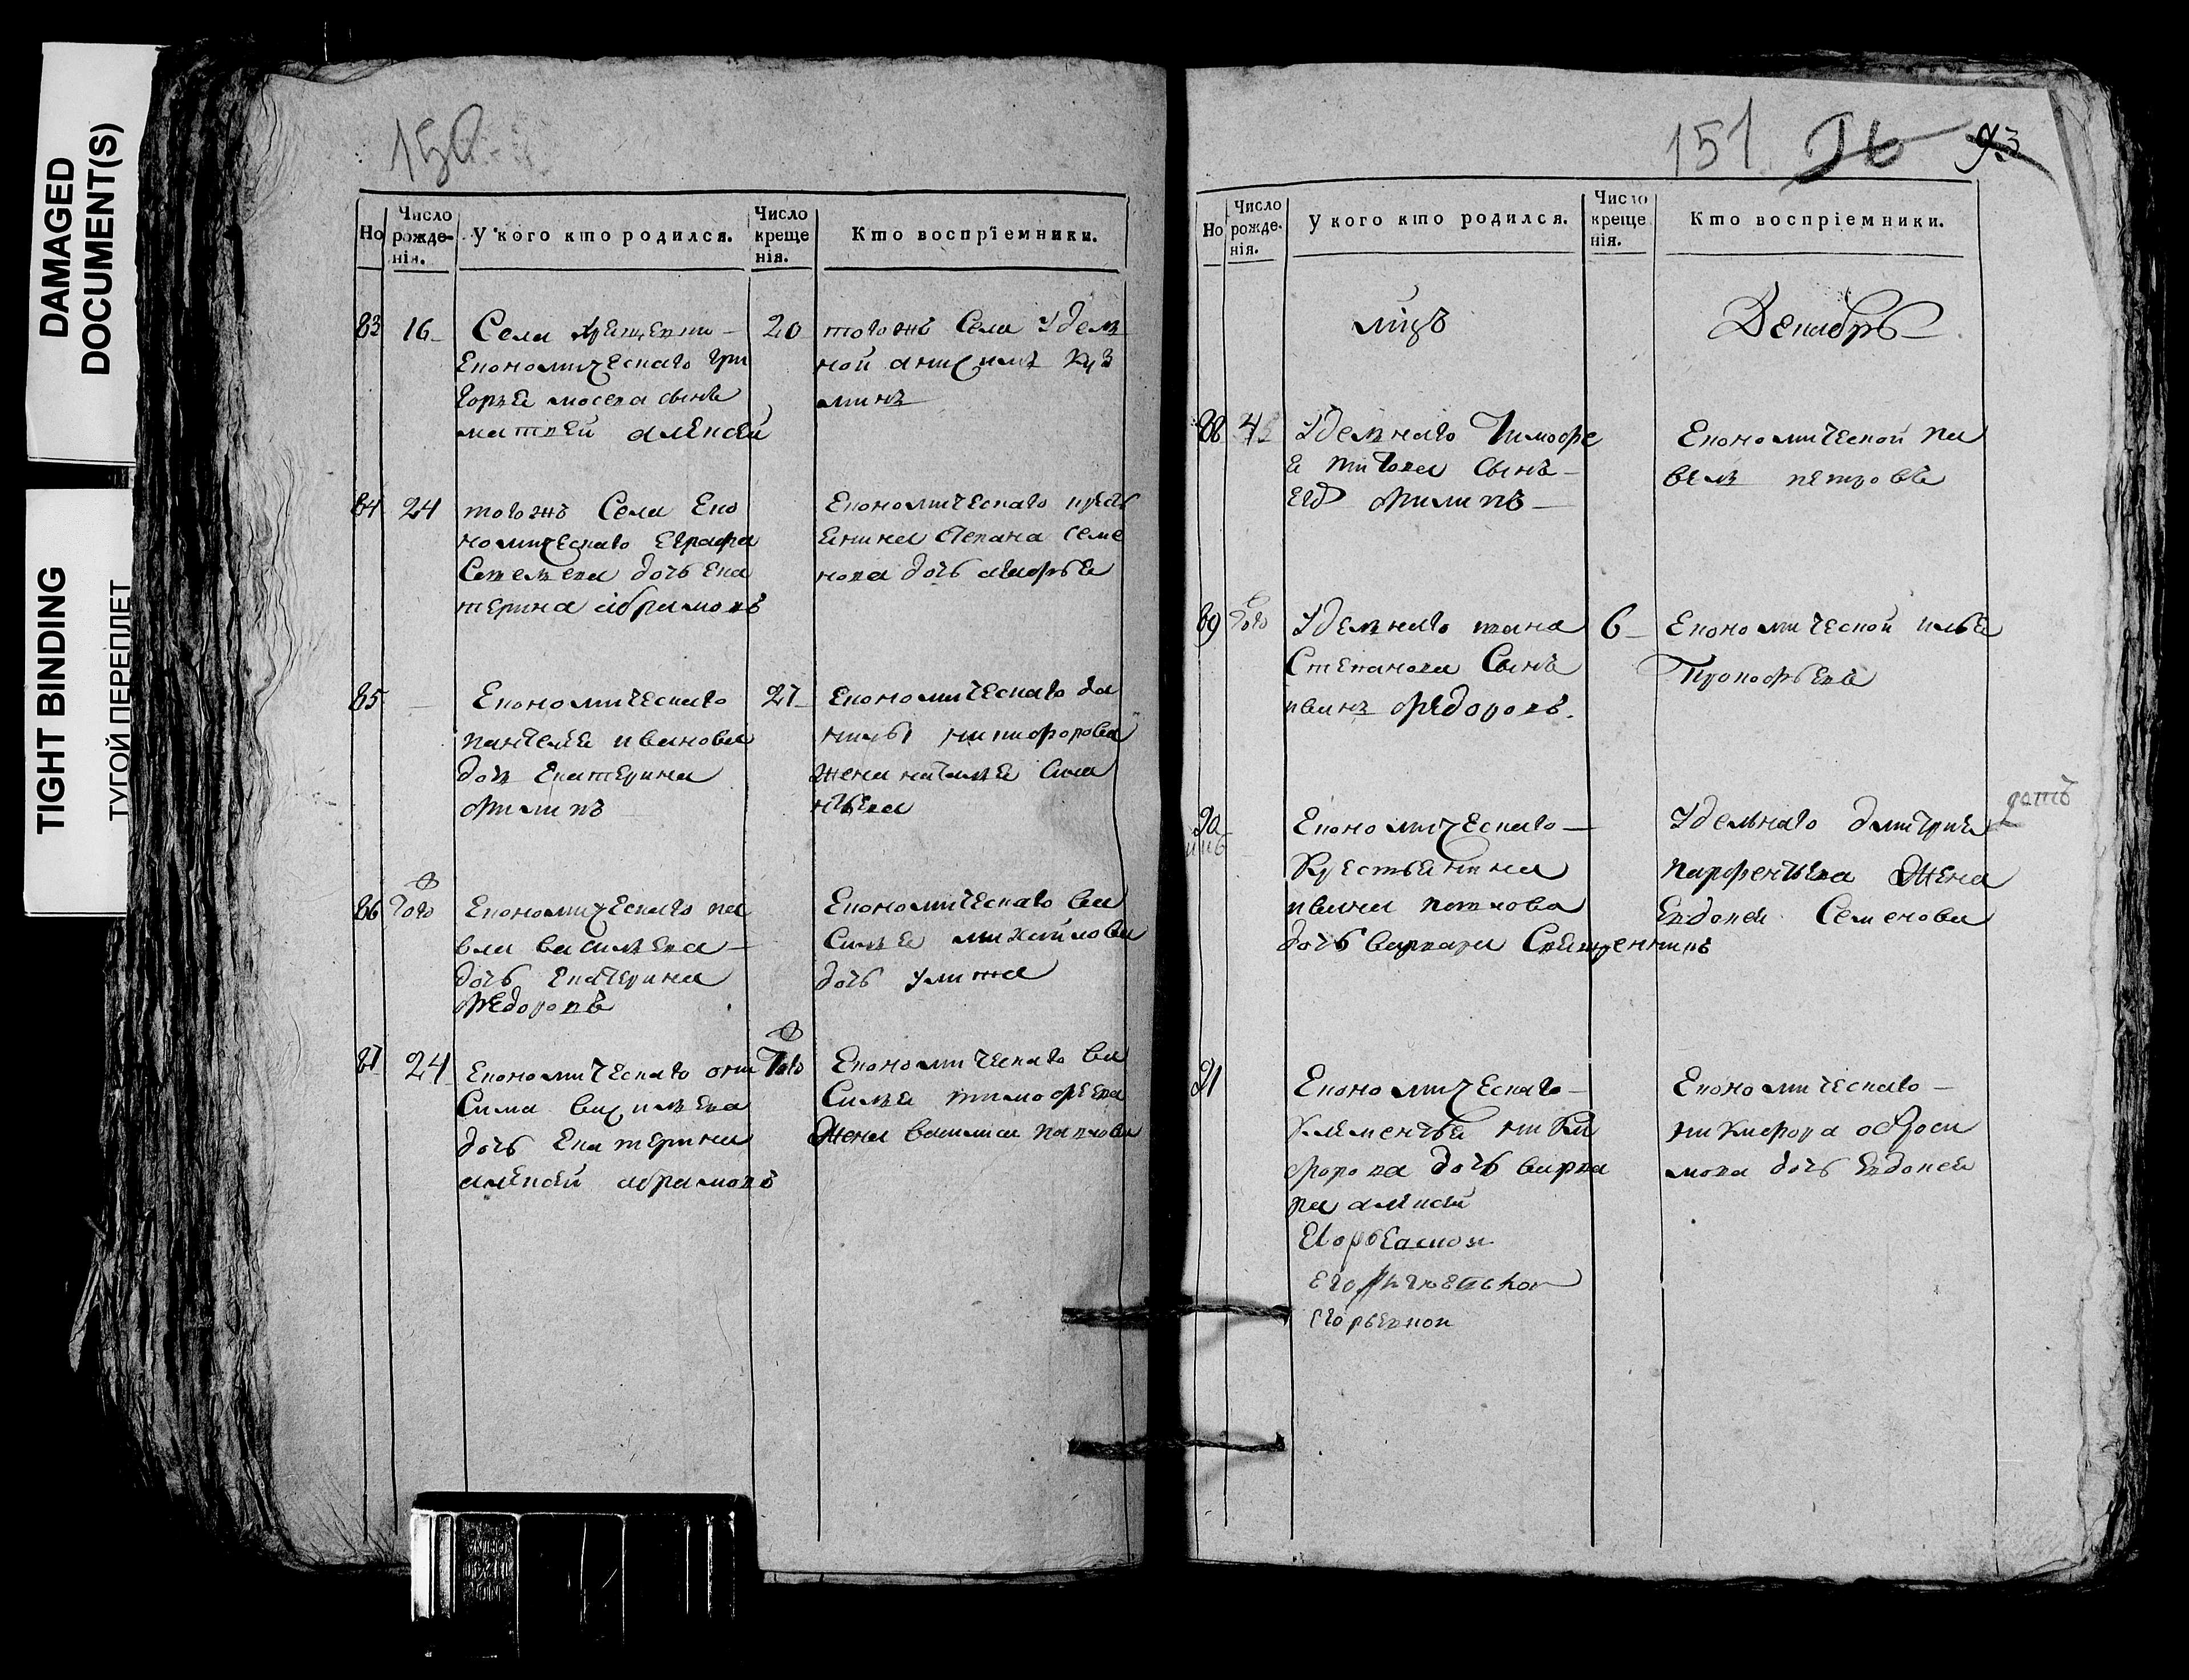 DAMAGED
DOCUMENT(S)
TIGHT BINDING
ТУГОЙ ПЕРЕПЛЕТ
150
Но
Число рожде-нія.
У кого кто родился.
Число креще нія.
Кто воспріемники.
83 16 Села
Економическаго Гри
горья мосева сынъ
матвей алексей
20 тогожъ Села Удел
ной анисимъ Куз
минъ
84 24 тогожъ Села Еко
номическаго Евграфа
дочь Ека
терина абрамовъ
Економическаго крест
янина Степана Семе
нова дочь
85 Економическаго
пантелея иванова
доч Екатерина
филипъ
27 Економическаго да
нилы никифорова
жена наталья
86 Того Економическаго па
вла васильева
дочь Екатерина
федоровъ
Економическаго ва
силья михайлова
дочь улита
87 24 Економическаго они
сима васильева
дочь Екатерина
алексей абрамовъ
Того Економическаго ва
силья тимофеева
жена василиса павлова
151 96 93
Но
Число рожде-нія.
У кого кто родился.
Число креще нія.
Кто воспріемники.
мцъ Декабрь
88 4 Удельнаго Тимофе
я титова сынъ
его филипъ
Економической па
велъ петровъ
89 Того Удельнаго
Степанова Сынъ
иванъ федоровъ.
6 Економической илья
Прокофьевъ
90 Економическаго
Крестьянина
ивана павлова
дочь варвара Священникъ
Удельнаго дмитрия
парфентьева Жена
Евдокея Семенова
91 Економическаго
Клементья ники
форова дочь варва
ра алексей
Економическаго
никифора оброси
мова дочь Евдокея